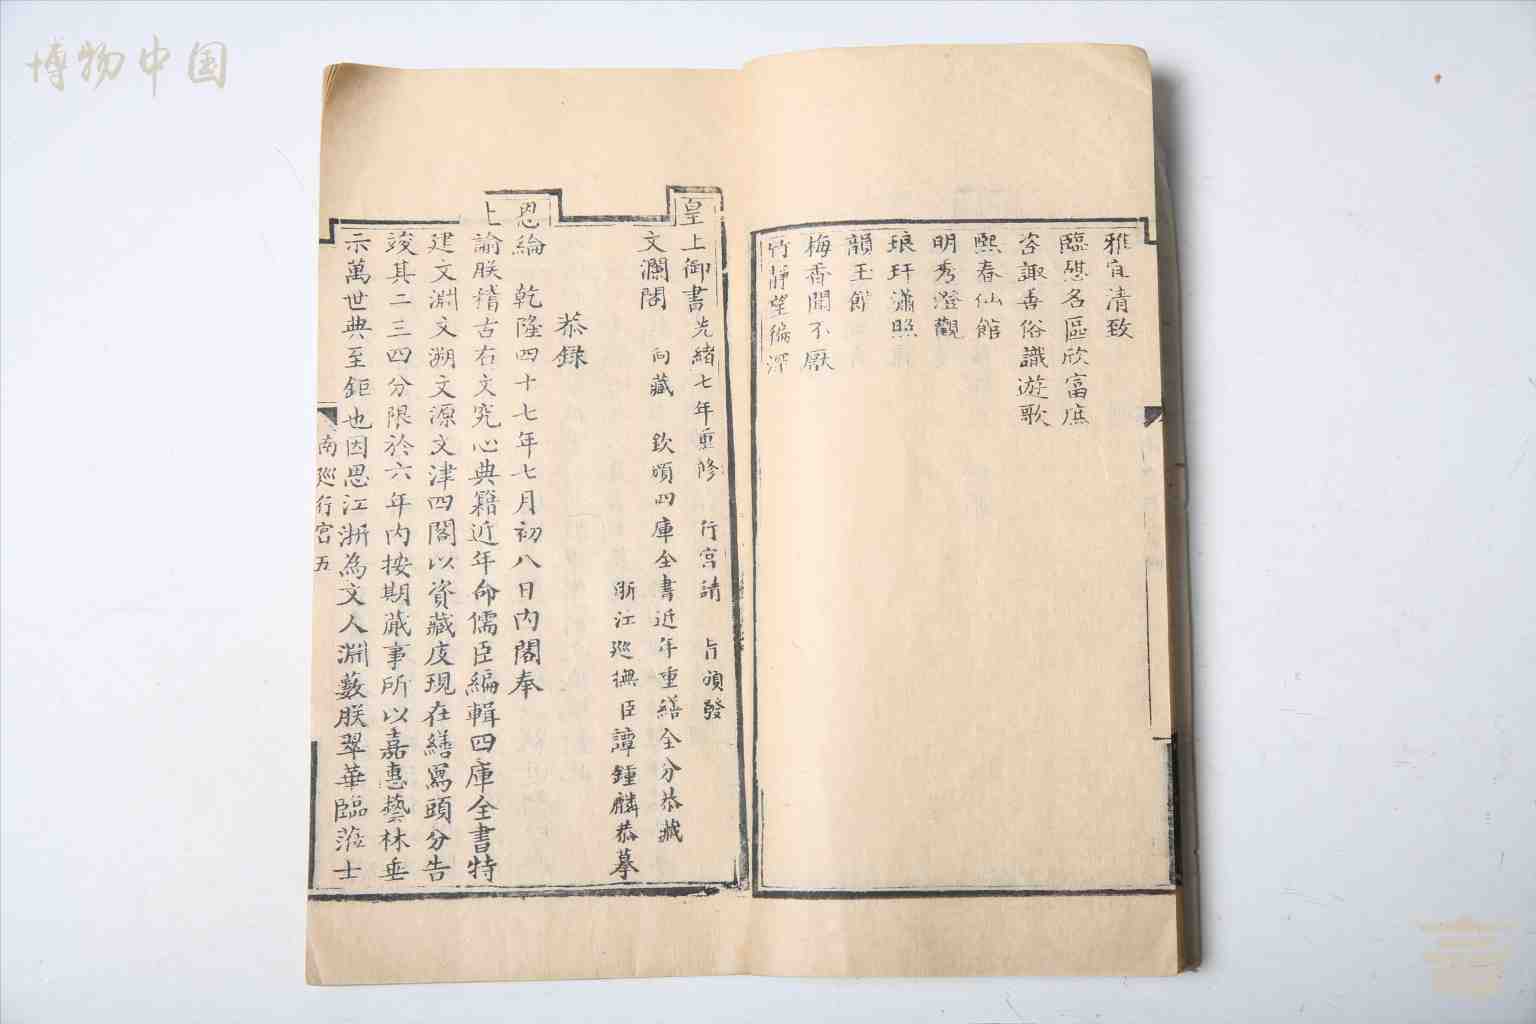 博物中国
雅宜清致
臨憇名區欣富庶
咨諏善俗識遊歌
熙春仙館
明秀澄觀
琅玕瀟照
韻玉館
梅香聞不厭
竹靜望徧深
皇上御書光緒七年重修 行宮請 旨頒發
文瀾閣 向藏 欽頒四庫全書近年重繕全分恭藏
浙江廵撫臣譚鍾麟恭摹
恭録
恩綸 乾隆四十七年七月初八日內閣奉
上諭朕稽古右文究心典籍近年命儒臣編輯四庫全書特
建文淵文溯文源文津四閣以資藏庋現在繕寫頭分告
竣其二三四分限於六年內按期蕆事所以嘉惠藝林垂
示萬世典至鉅也因思江浙為文人淵藪朕翠華臨涖士
南廵行宮 五